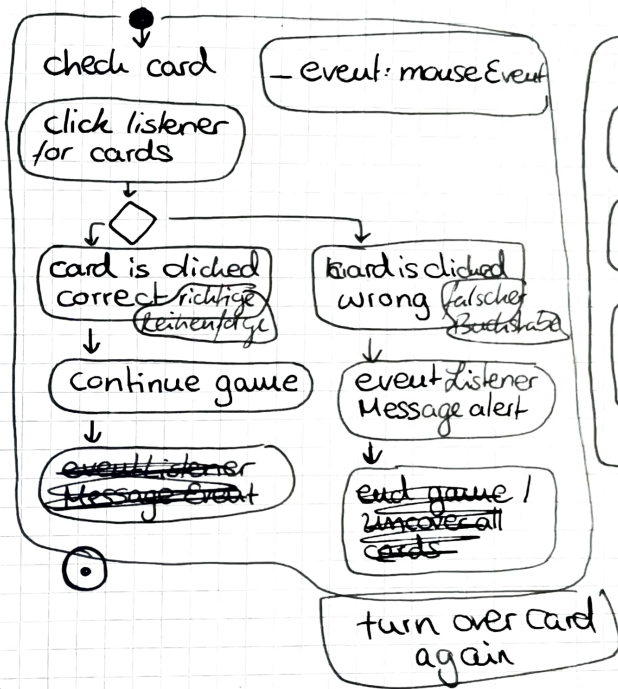 check card
– event: mouseEvent
click listener
for cards
card is clicked
correct richtige
Reihenfolge
card is clicked
wrong falscher
Buchstabe
continue game
eventListener
Message alert
eventListener
Message Event
end game /
uncover all
cards
turn over card
again